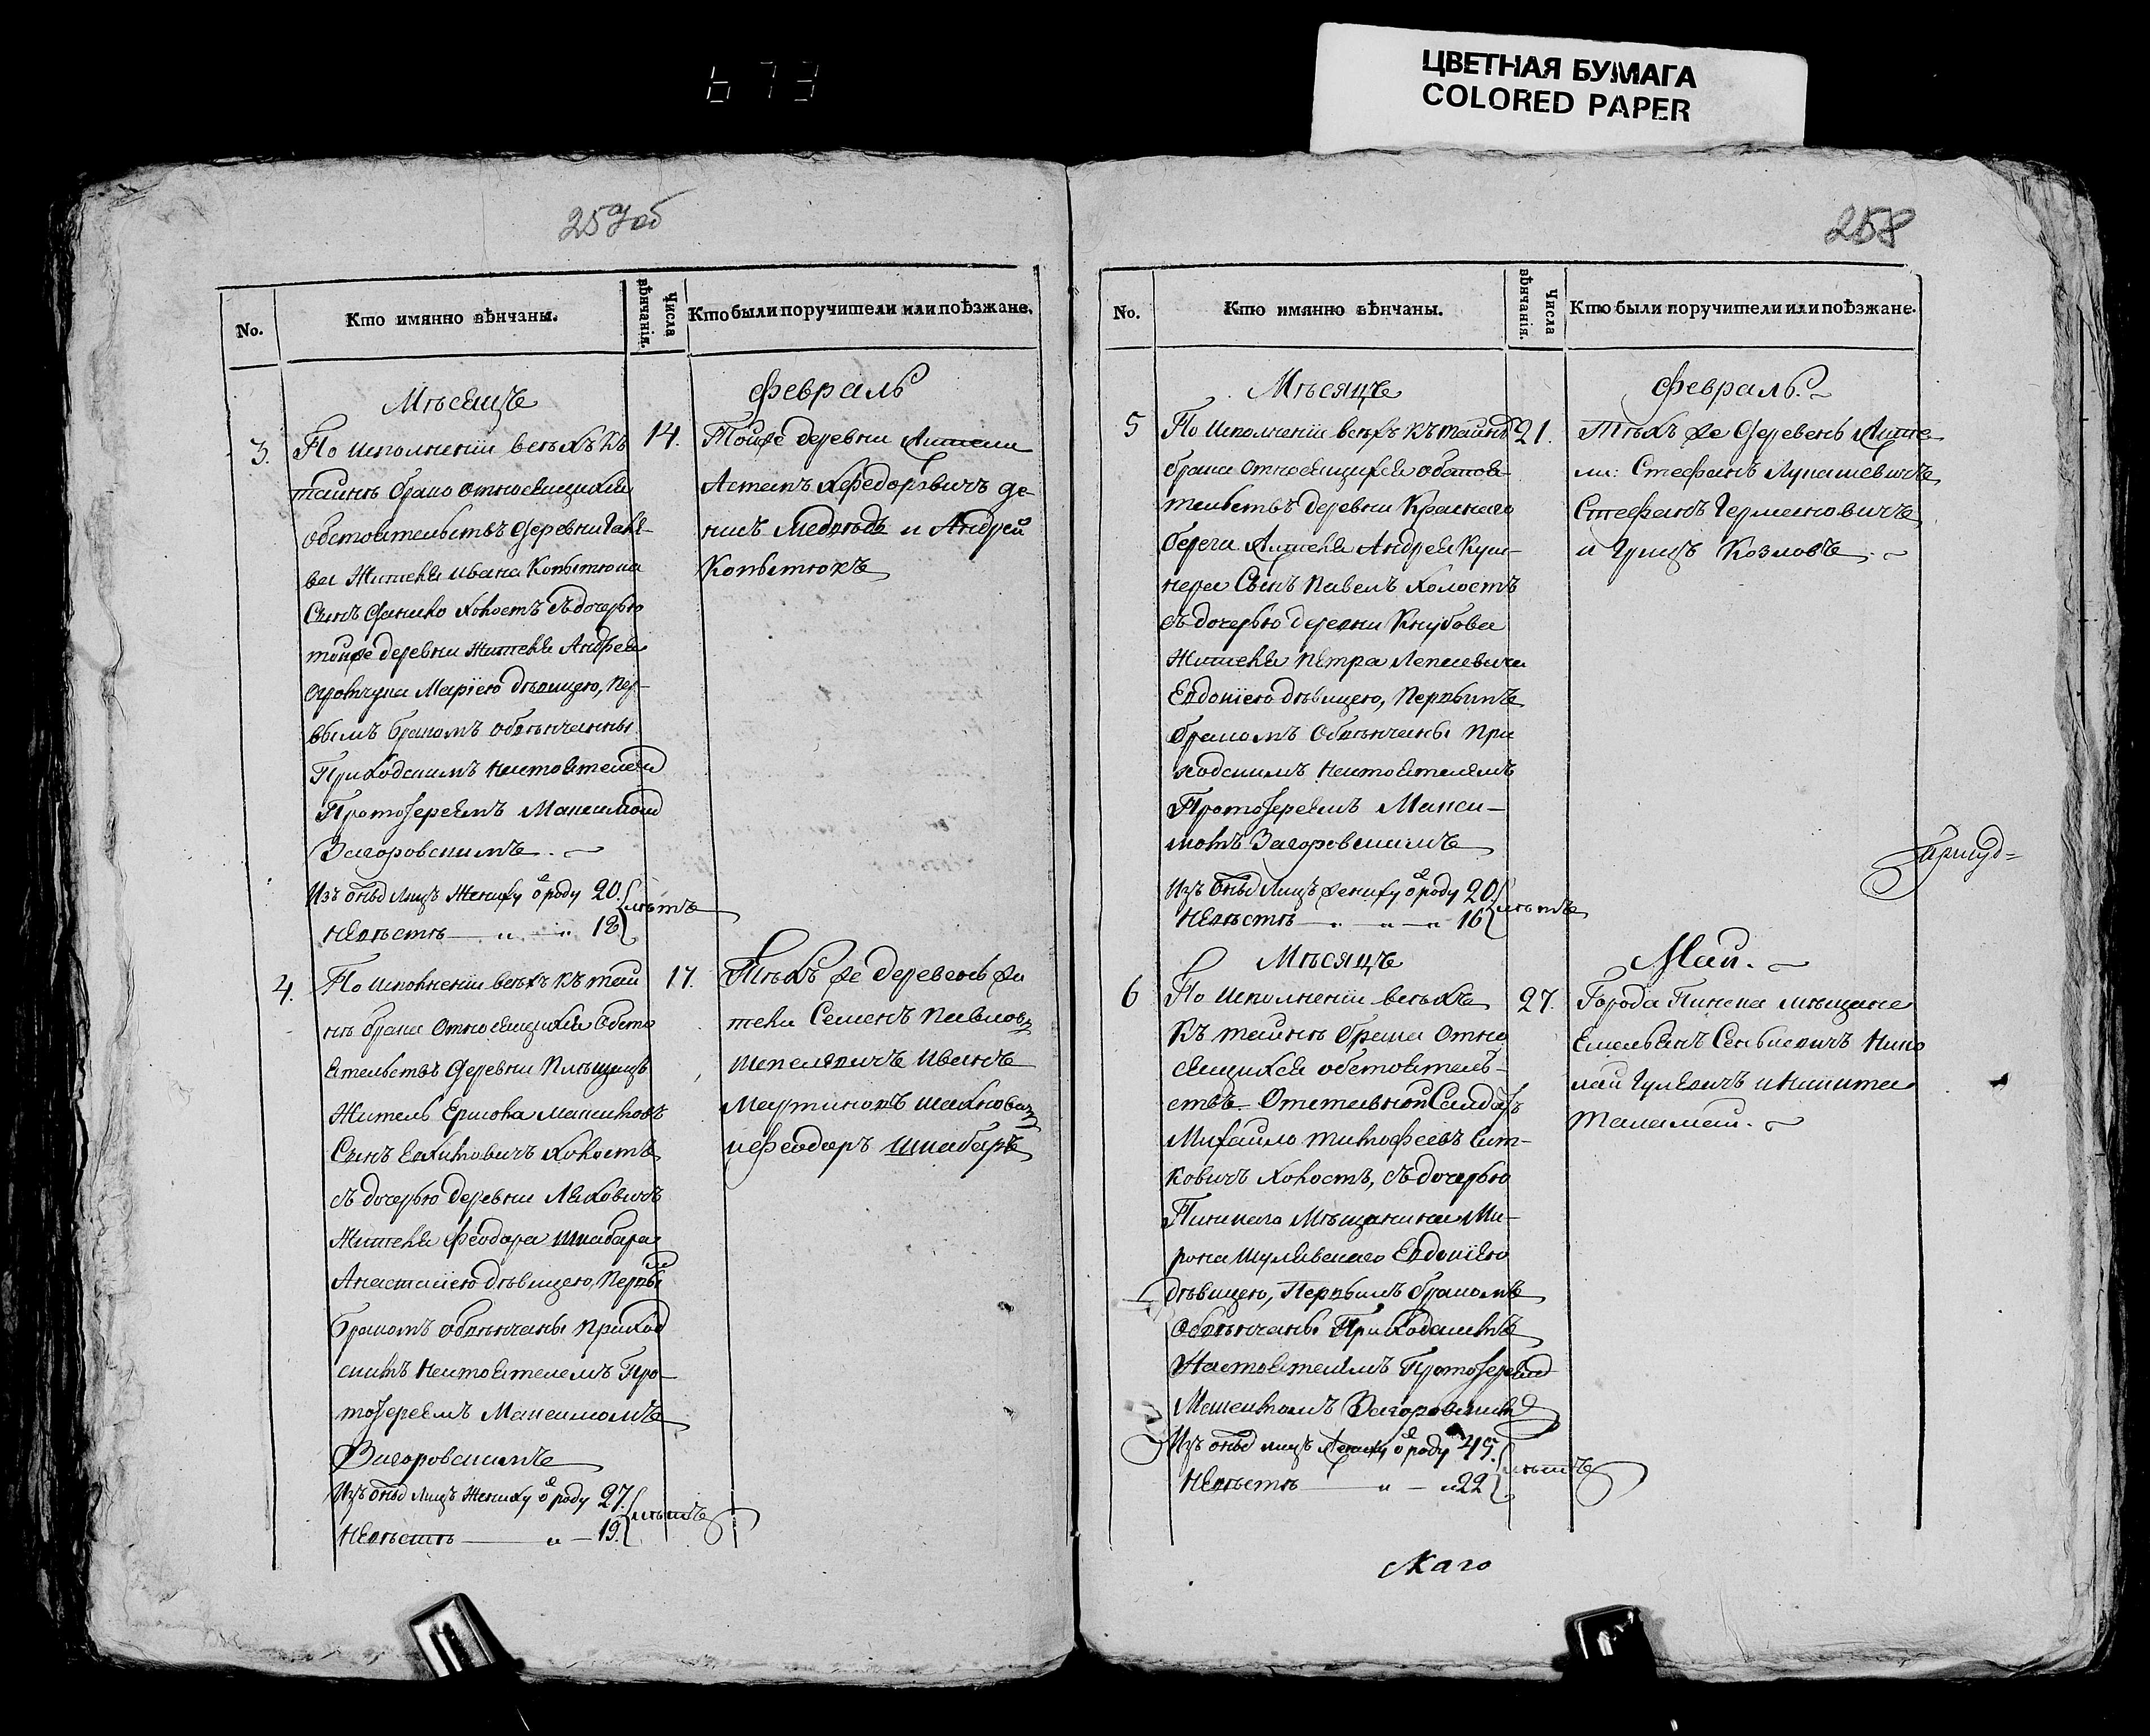 673
ЦВЕТНАЯ БУМАГА
COLORED PAPER
257об
No.
Кто имянно вѣнчаны.
Числа вѣнчанія.
Кто были поручители или поѣзжане.
Мѣсяцъ
Февраль
3.
По исполненіи всѣхъ къ
таинѣ брака относящихся
обстоятельствъ деревни
жителя Ивана Копытюка
сынъ Данило холостъ съ дочерью
тойже деревни жителя Андрея
Маріею дѣвицею, пер-
вымъ бракомъ обвѣнчанны
Приходскимъ настоятелемъ
Протоіереемъ Максимомъ
Загоровскимъ
Изъ оныхъ лицъ жениху о роду 20.
невѣстѣ — " — " 18
лѣтъ
14.
Тойже деревни жители
Астапъ Хфедоровичъ Де-
нисъ Медвѣдь и Андрей
Копытюкъ
4.
По исполненіи всѣхъ къ таи
нѣ брака относящихся обсто
ятельствъ деревни Плещицъ
житель Ермола Максимовъ
сынъ Евхимовичъ холостъ
съ дочерью деревни Ляховичъ
жителя Феодора Шкабара
Анастасіею дѣвицею, первы
бракомъ обвѣнчаны приход
скимъ настоятелемъ Про-
тоіереемъ Максимомъ
Загоровскимъ
Изъ оныхъ лицъ жениху о роду 27.
невѣстѣ — " — 19.
лѣтъ
17.
Тѣхъ же деревень жи
тели Семенъ Павловъ
Шепелевичъ Иванъ
Мартиновъ
и Феодоръ Шкабаръ
258
No.
Кто имянно вѣнчаны.
Числа вѣнчанія.
Кто были поручители или поѣзжане.
Мѣсяцъ
Февраль.
5
По исполненіи всѣхъ къ таинѣ
брака относящихся обстоя-
тельствъ деревни Краснаго
берега жителя Андрея Куш-
нера сынъ Павелъ холостъ
съ дочерью деревни Кнубова
жителя Петра Лепшевича
Евдокіею дѣвицею, первымъ
бракомъ обвѣнчаны при
ходскимъ настоятелемъ
Протоіереемъ Макси-
момъ Загоровскимъ
Изъ оныхъ лицъ жениху о роду 20.
невѣстѣ — " — " — " 16
лѣтъ
21.
Тѣхъ же деревень жите-
ли: Стефанъ Лукашевичъ
Стефанъ Германовичъ
и Грицъ Козловъ
Мѣсяцъ
Май.
6
По исполненіи всѣхъ
къ таинѣ брака отно
сящихся обстоятель-
ствъ Отставной Салдатъ
Михайло Тимофеевъ Сит-
ковичъ холостъ, съ дочерью
Пинскаго мѣщанина Ми-
рона Шулявскаго Евдокіею
дѣвицею, первымъ бракомъ
обвѣнчаны Приходскимъ
Настоятелемъ Протоіереемъ
Максимомъ Загоровскимъ
Изъ оныхъ лицъ жениху о роду 45.
невѣстѣ — " — " 22
лѣтъ
27.
Города Пинска мѣщане
Емельянъ Сеньневичъ Нико
лай Гулевичъ и Никита
Таламай.